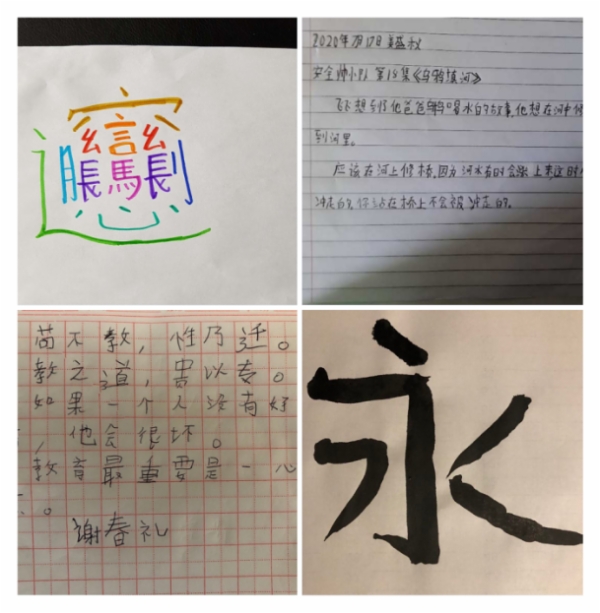 𰻞
2020年7月17日
第18集《乌鸦填河》
想到他爸爸喝水的故事,他想在河中修
到河里。
应该在河上修桥,因为河水有时会涨上来这时
冲走的,你站在桥上不会被冲走的。
苟不教,性乃迁。
教之道,贵以专。
如果一个人没有好
,他会很坏。
教育最重要是一心
。
谢春礼
永